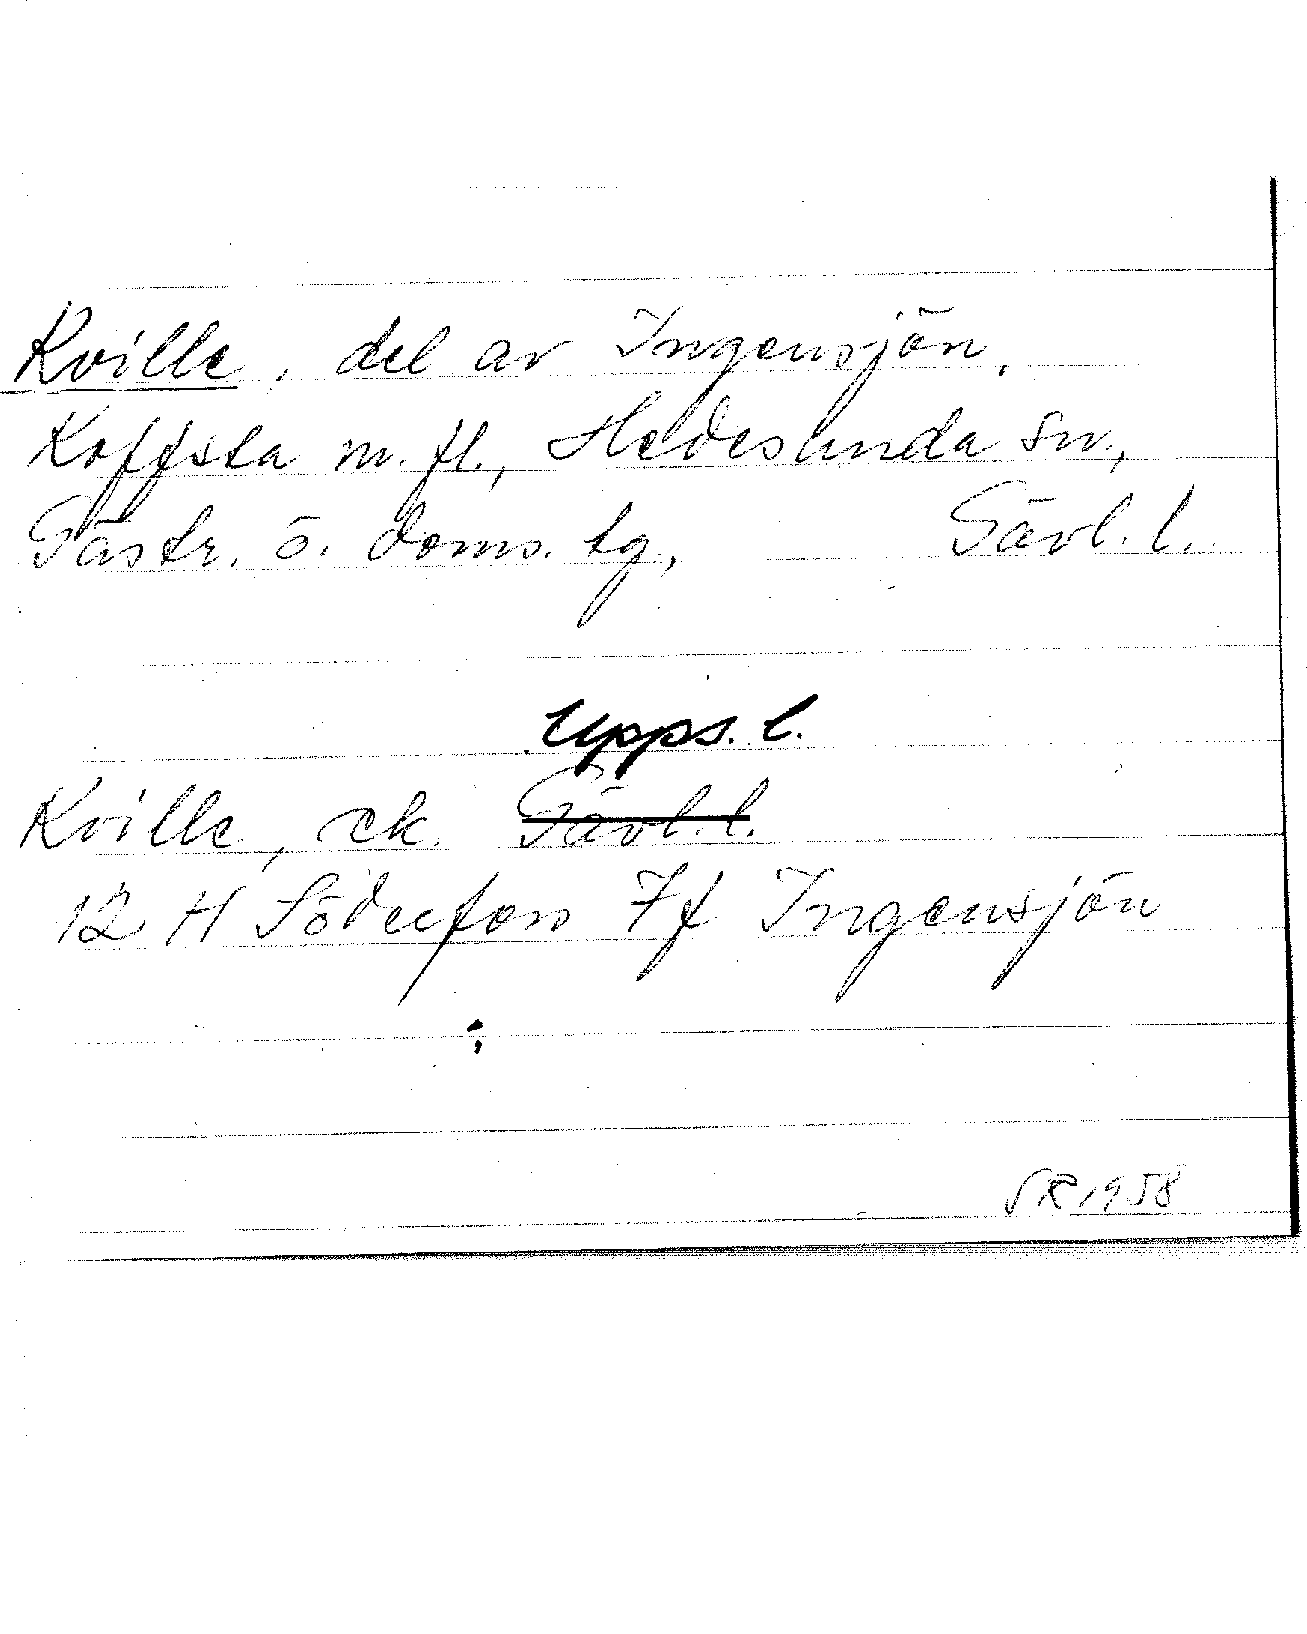 Kville, del av Ingensjön,
Koffsta m. fl., Hedesunda sn.,
Gästr. ö. doms. tg, Gävl. l.
Upps. l.
Kville, ek. Gävl. l.
12 H Söderfors 7f Ingensjön
SR 1958